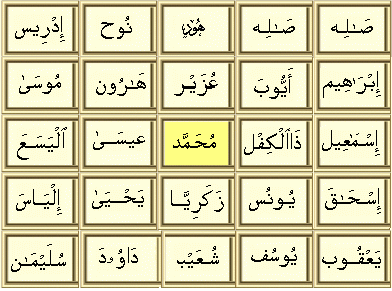 صَـٰلِه صَـٰلِه هُود نُوح إِدْرِيس
إِبْرَٰهِيم أَيُّوبَ عُزَيْر هَـٰرُون مُوسَىٰ
إِسْمَـٰعِيل ذَاٱلْكِفْل مُحَمَّد عِيسَىٰ ٱلْيَسَعَ
إِسْحَـٰقَ يُونُس زَكَرِيَّا يَحْيَىٰ إِلْيَاسَ
يَعْقُوبَ يُوسُف شُعَيْب دَاوُۥدَ سُلَيْمَـٰن